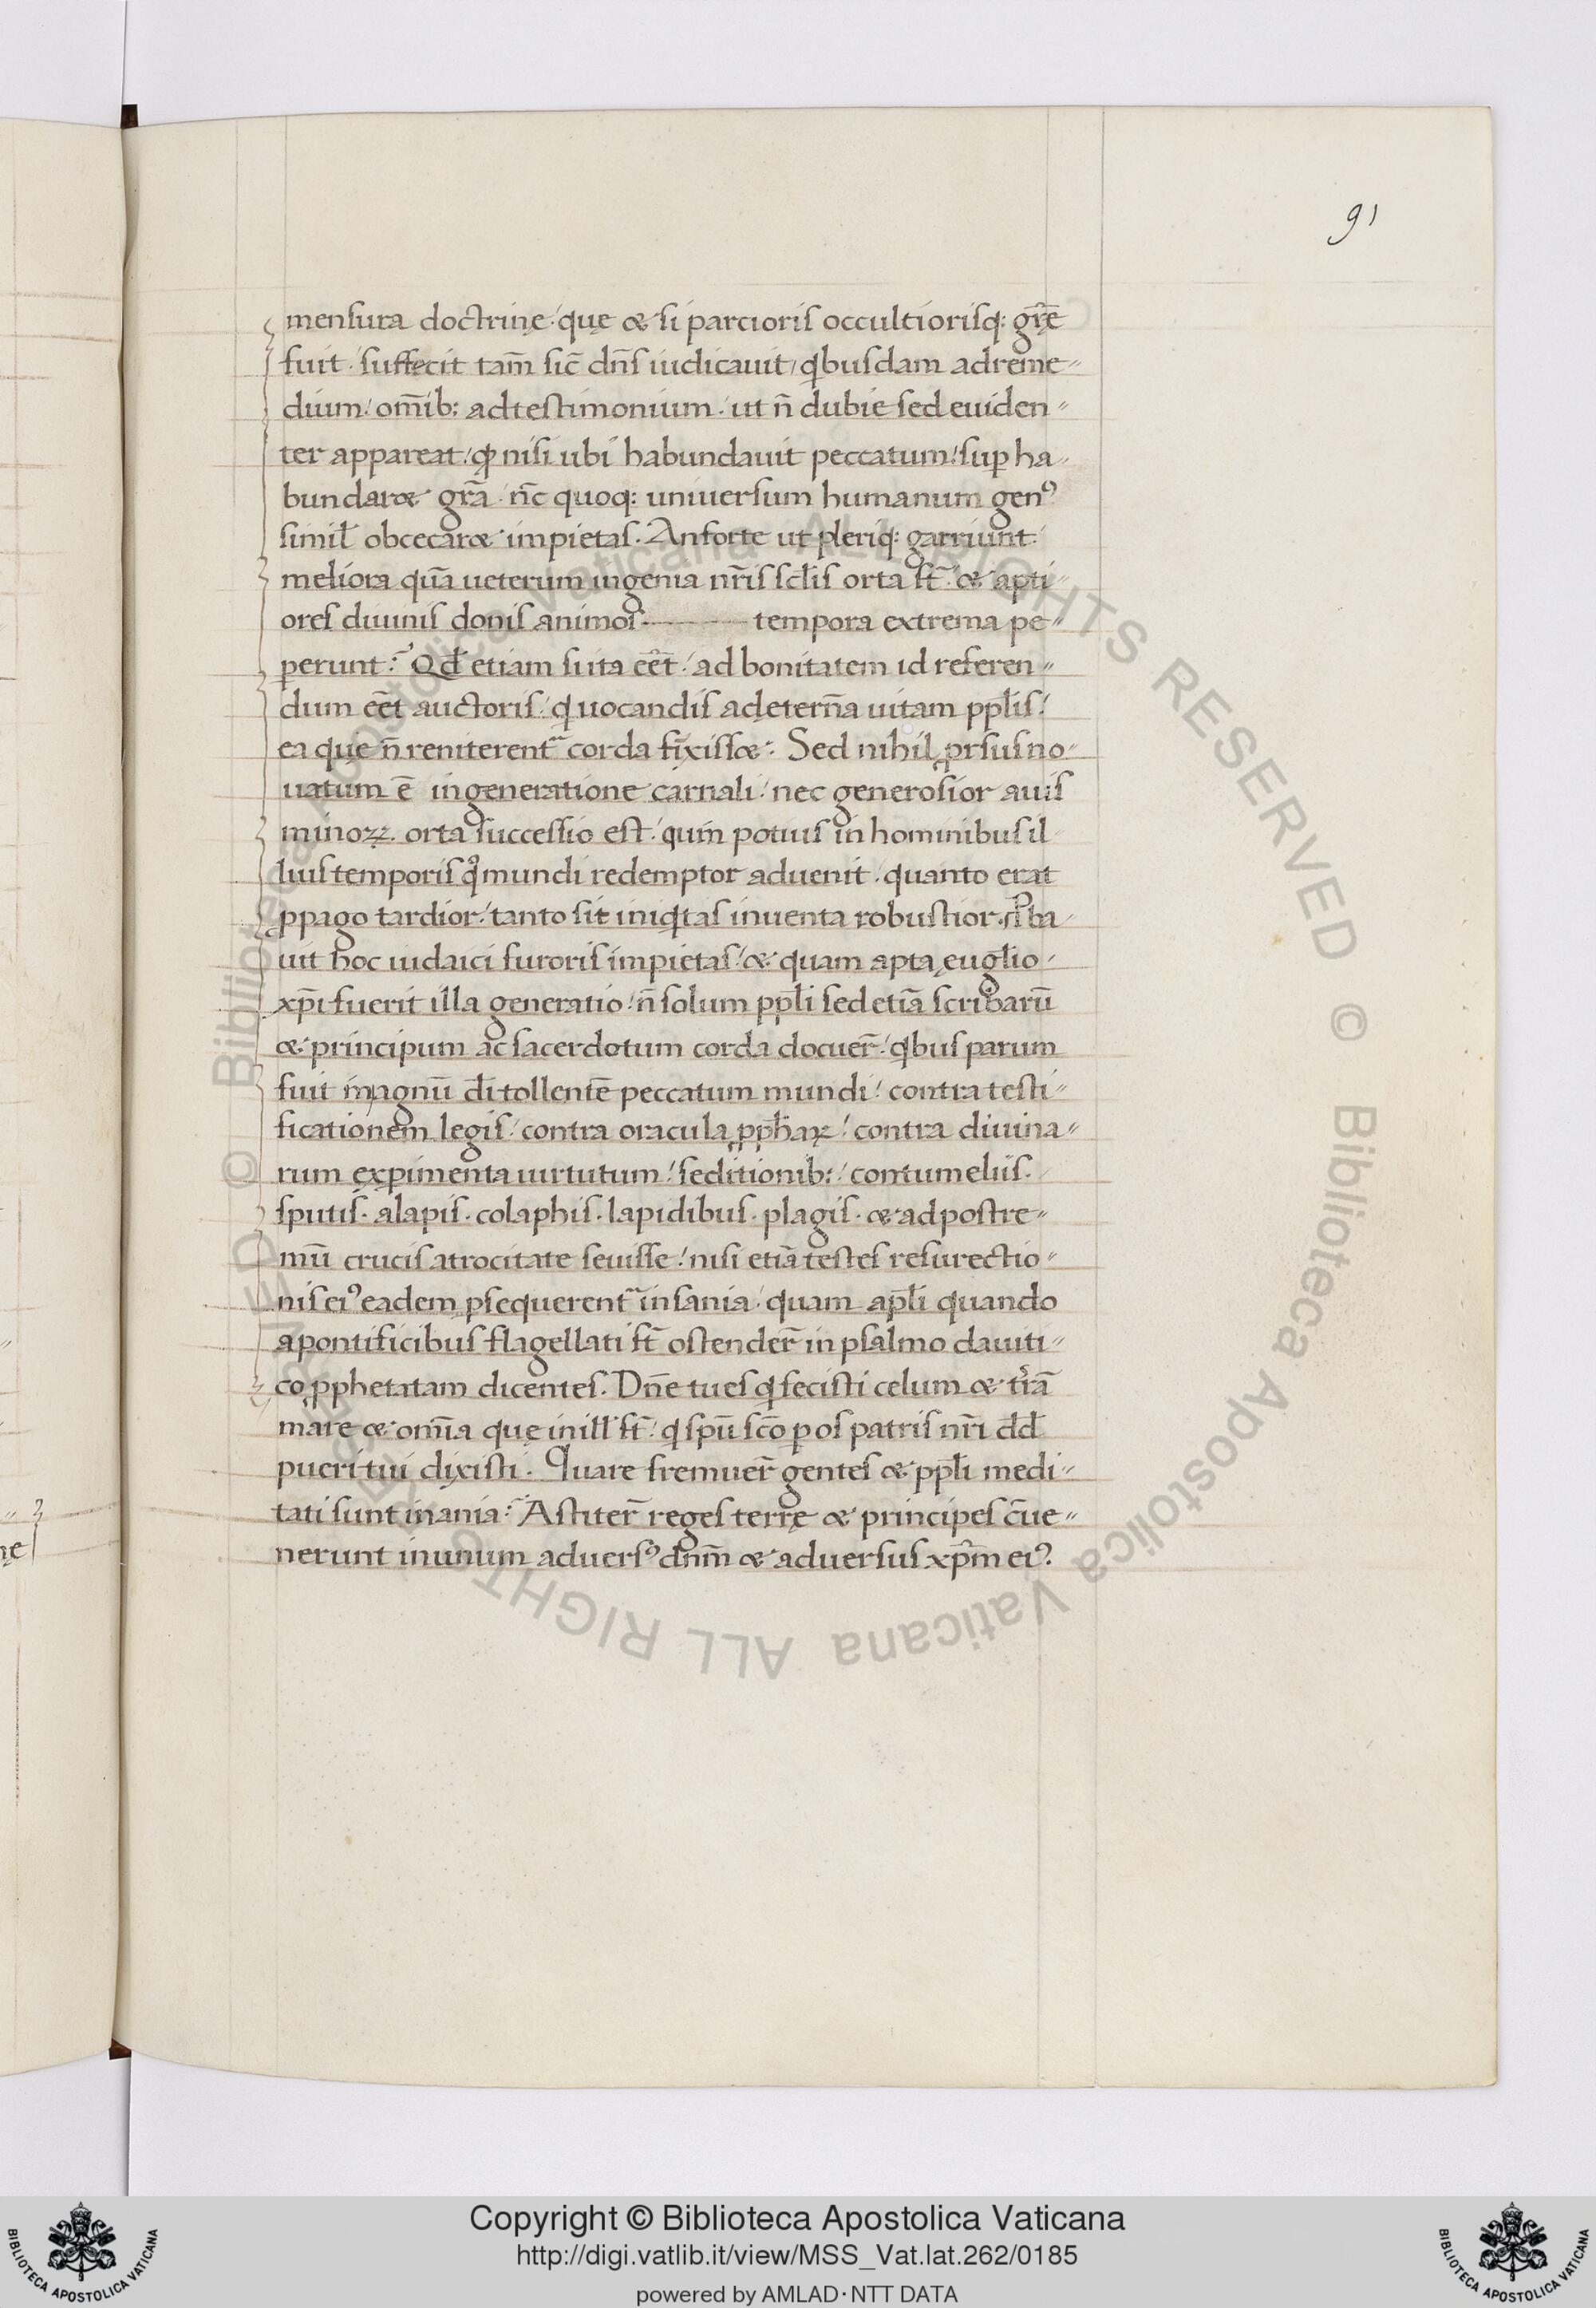 91
mensura doctrinę· quę & si parcioris occultiorisq; gr̄ę
fuit· suffecit tam̄ sic̄ dn̄s iudicauit, qbusdam adreme-
dium· om̄ib; adtestimonium· ut n̄ dubie sed euiden-
ter appareat· qꝫ nisi ubi habundauit peccatum· suꝑ ha-
bundar& gr̄a· n̄c quoq; uniuersum humanum genꝰ
simil̄ obcecar& impietas. Anforte ut pleriq; garriunt·
meliora quā ueterum ingenia nr̄is sc̄lis orta st̄· & apti-
ores diuinis donis animos tempora extrema pe-
perunt? Qd̄ etiam si ita eēt· ad bonitatem id referen-
dum eēt auctoris· q uocandis adetern̄a uitam ppl̄is·
ea quę n̄ reniterent̄ corda finxiss&. Sed nihil ꝓrsus no-
uatum ē ingeneratione carnali· nec generosior auis
minoꝝ orta successio est· quin potius in hominibus il-
lius temporis qͦ mundi redemptor aduenit· quanto erat
ꝓpago tardior· tanto sit iniqtas inuenta robustior. Pba-
uit hoc iudaici furoris impietas· & quam apta euglio
xp̄i fuerit illa generatio· n̄ solum ppl̄i sed etiā scribarū
& principum ac sacerdotum corda docuer̄· qbus parum
fuit in agnū dī tollentē peccatum mundi· contra testi-
ficationem legis· contra oracula ꝓph̄aꝝ· contra diuina-
rum exꝑimenta uirtutum· seditionib;· contumeliis·
sputis· alapis· colaphis· lapidibus· plagis· & adpostre-
mū crucis atrocitate seuisse· nisi etiā testes resurectio-
nis eiꝰ eadem ꝑsequerent̄ insania· quam apl̄i quando
apontificibus flagellati st̄ ostender̄ in psalmo dauiti-
co ꝓphetatam dicentes. Dn̄e tu es q fecisti celum & tr̄ā
mare & om̄ia quę inill̄ st̄· q spū sc̄o ꝑ os patris nr̄i dd̄
pueri tui dixisti. Quare fremuer̄ gentes & ppl̄i medi-
tati sunt inania? Astiter̄ reges terrę & principes c̄ue-
nerunt inunum aduersꝰ dnm̄ & aduersus xp̄m eiꝰ.
Copyright © Biblioteca Apostolica Vaticana
http://digi.vatlib.it/view/MSS_Vat.lat.262/0185
powered by AMLAD·NTT DATA